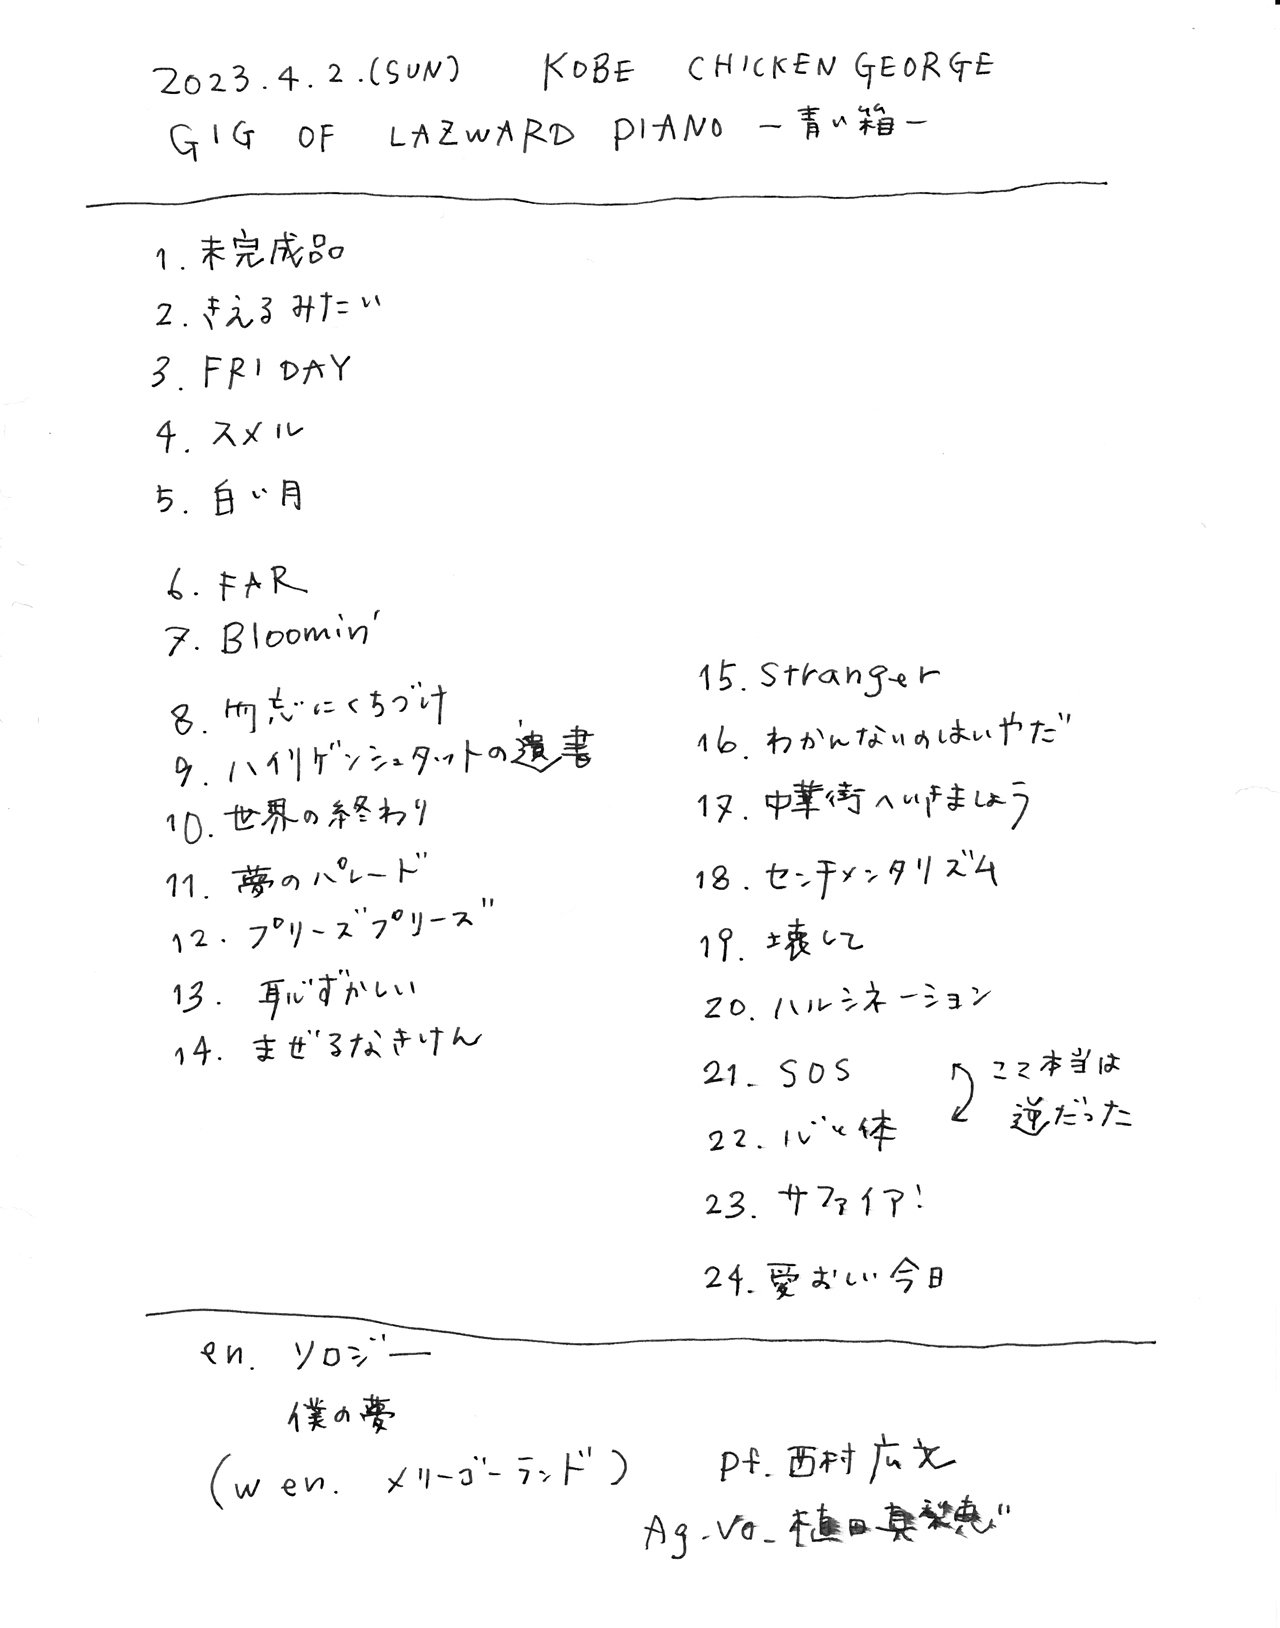 2023.4.2.(SUN) KOBE CHICKEN GEORGE
GIG OF LAZWARD PIANO －青い箱－
1. 未完成品
2. きえるみたい
3. FRIDAY
4. スメル
5. 白い月
6. FAR
7. Bloomin'
8. 勿忘にくちづけ
9. ハイリゲンシュタットの遺書
10. 世界の終わり
11. 夢のパレード
12. プリーズプリーズ
13. 恥ずかしい
14. まぜるなきけん
15. Stranger
16. わかんないのはいやだ
17. 中華街へいきましょう
18. センチメンタリズム
19. 壊して
20. ハルシネーション
21. SOS
22. 心と体
ここ本当は
逆だった
23. サファイア！
24. 愛おしい今日
en. ソロジー
僕の夢
(w en. メリーゴーランド)
pf. 西村広文
Ag. Vo. 植田真梨恵